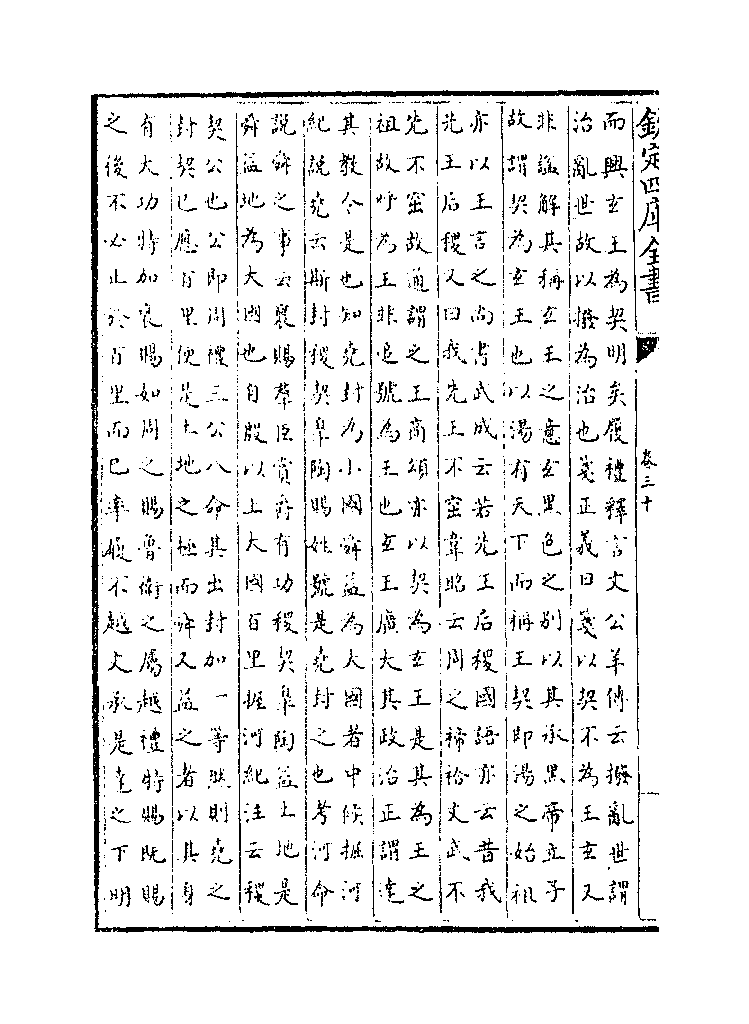 欽定四庫全書
卷三十
而興玄王為契明矣履禮釋言文公羊傳云撥亂世謂
治亂世故以撥為治也箋正義曰箋以契不為王玄又
非諡解其稱玄王之意玄黑色之别以其承黑帝立子
故謂契為玄王也以湯有天下而稱王契即湯之始祖
亦以王言之尚書武成云若先王后稷國語亦云昔我
先王后稷又曰我先王不窋韋昭云周之禘祫文武不
先不窋故通謂之王商頌亦以契為玄王是其為王之
祖故呼為王非追號為王也玄王廣大其政治正謂達
其教令是也知堯封為小國舜益為大國者中候握河
紀說堯云斯封稷契臯陶賜姓號是堯封之也考河命
說舜之事云褒賜羣臣賞爵有功稷契臯陶益土地是
舜益地為大國也自殷以上大國百里握河紀注云稷
契公也公即周禮三公八命其出封加一等然則堯之
封契已應百里便是土地之極而舜又益之者以其身
有大功特加褒賜如周之賜魯衛之屬越禮特賜既賜
之後不必止於百里而已率履不越文承是達之下明